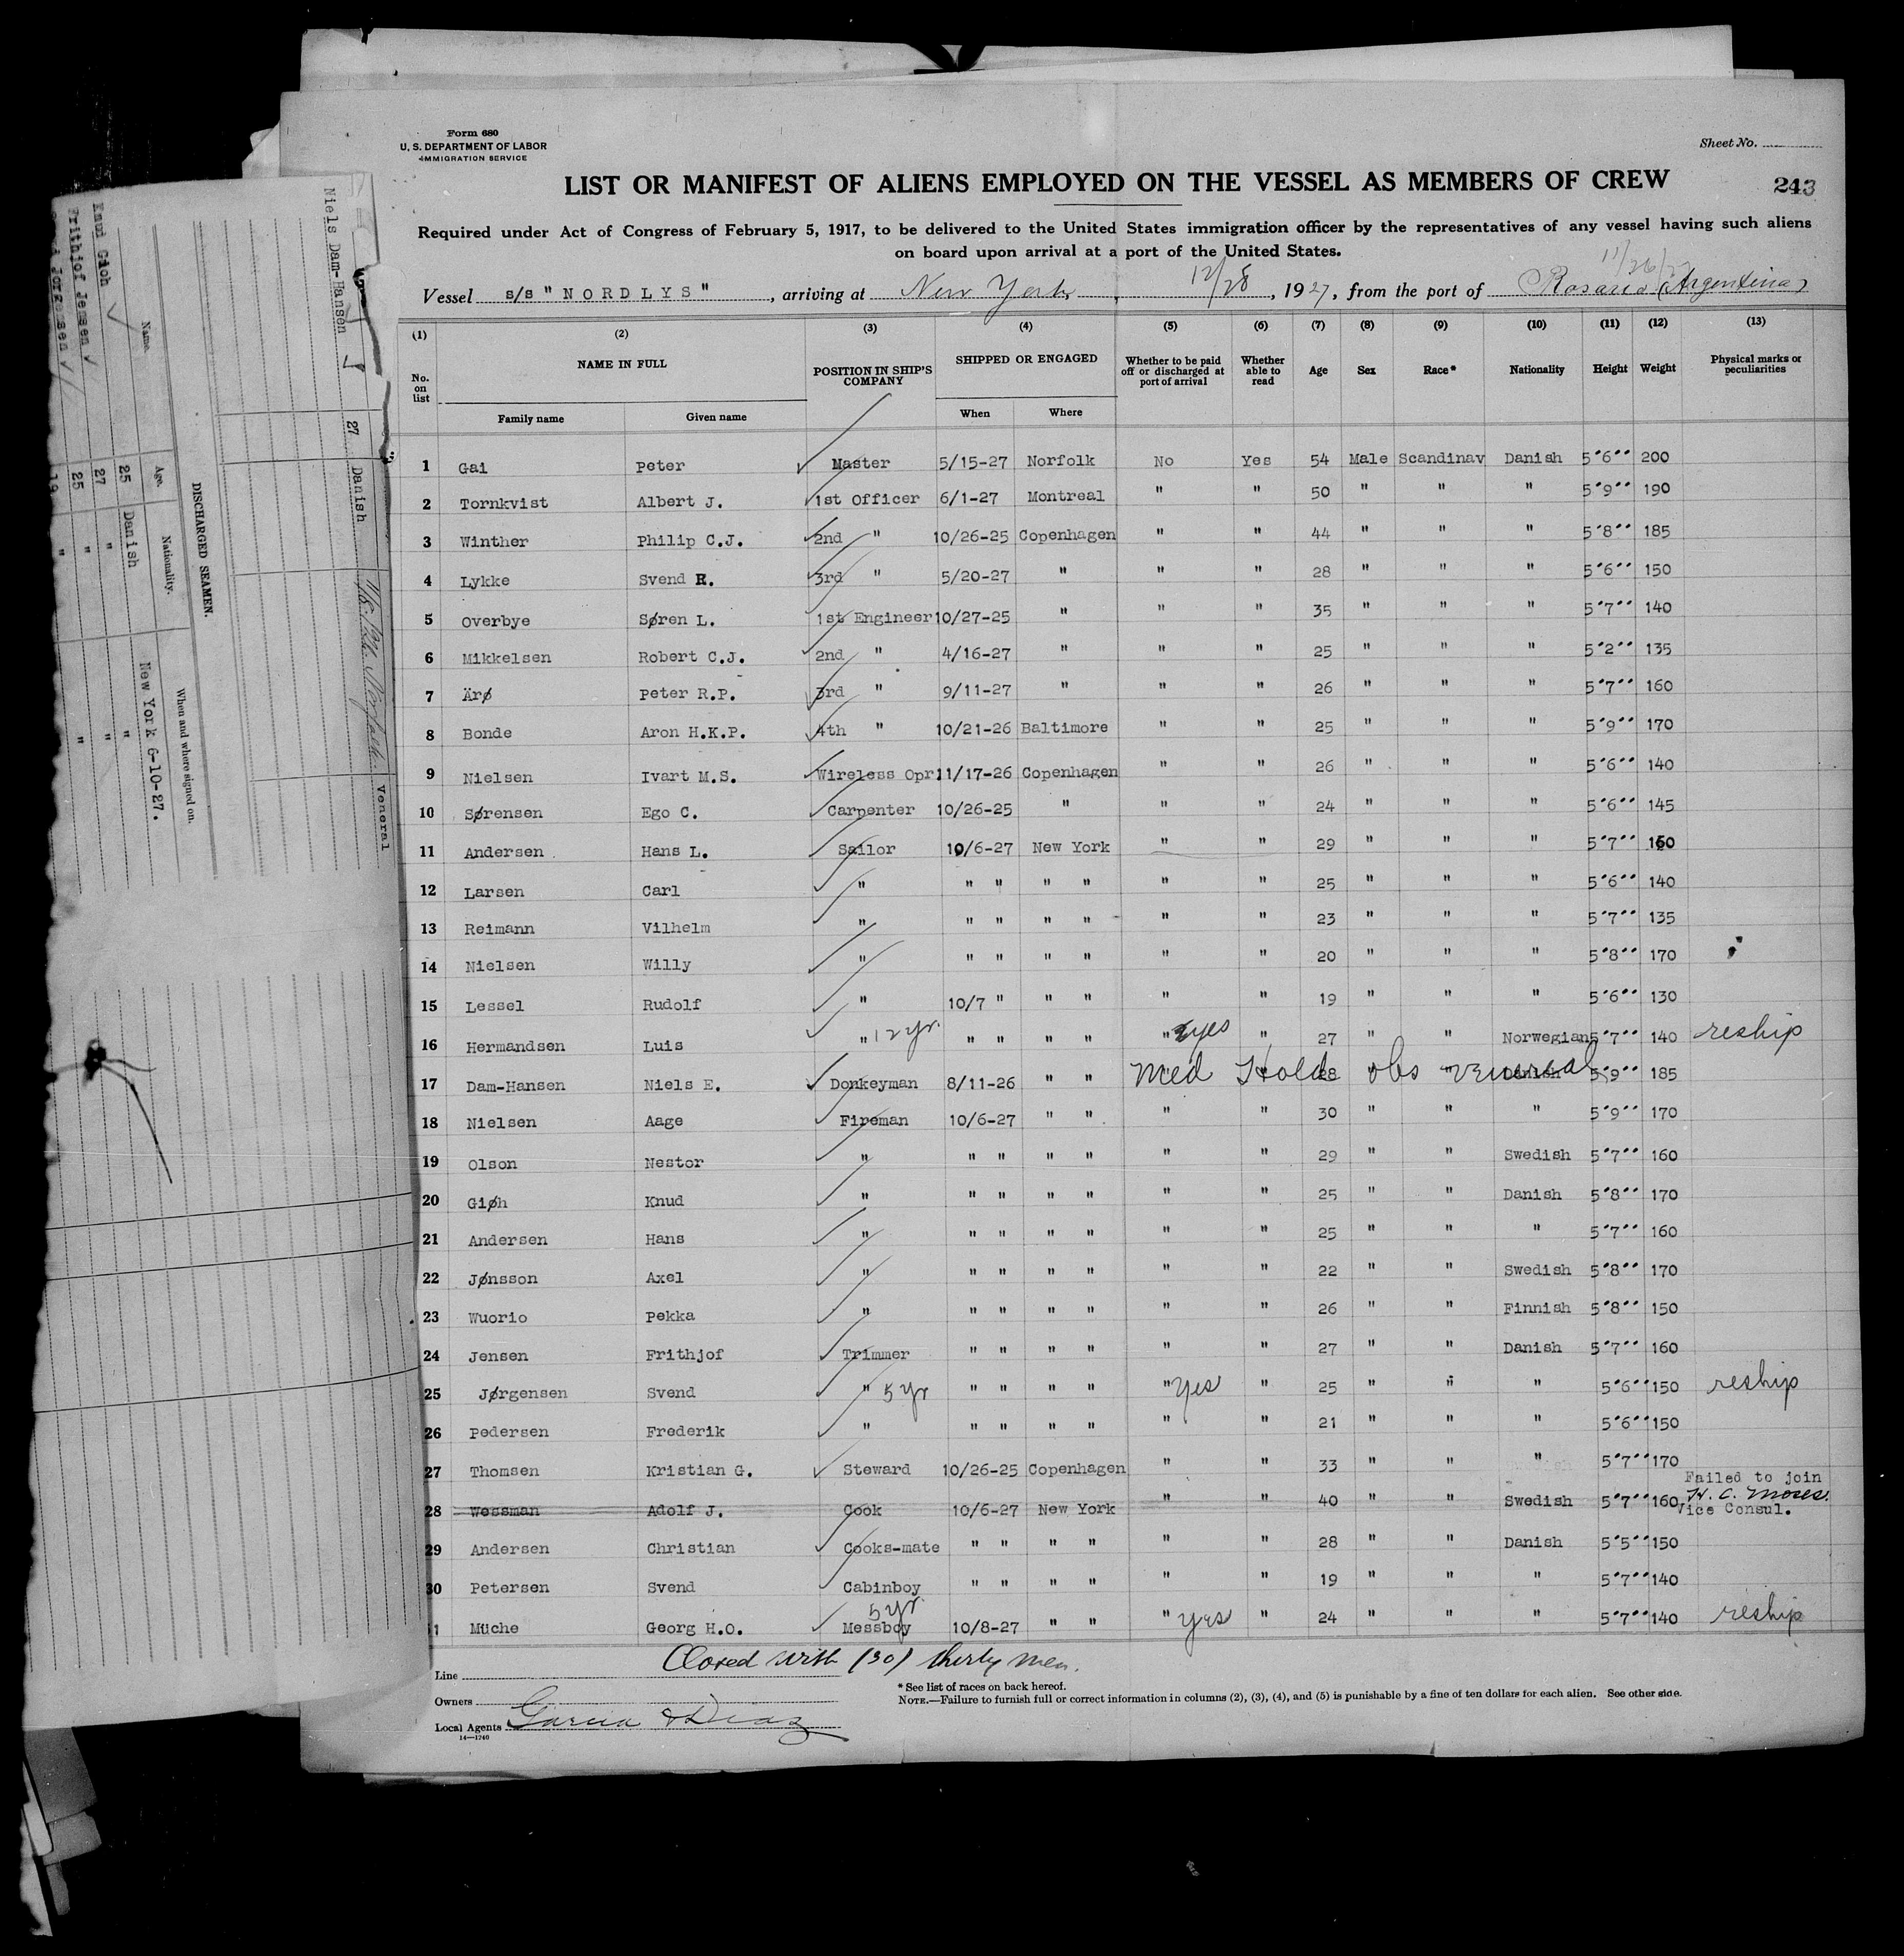 Form 680
U. S. DEPARTMENT OF LABOR
IMMIGRATION SERVICE
Sheet No.
LIST OR MANIFEST OF ALIENS EMPLOYED ON THE VESSEL AS MEMBERS OF CREW
243
Required under Act of Congress of February 5, 1917, to be delivered to the United States immigration officer by the representatives of any vessel having such aliens
on board upon arrival at a port of the United States.
11/26/27
Vessel s/s "NORDLYS", arriving at New York, 12/28, 1927, from the port of Rosario (Argentina)
(1) (2) (3) (4) (5) (6) (7) (8) (9) (10) (11) (12) (13)
No. on list NAME IN FULL POSITION IN SHIP'S COMPANY SHIPPED OR ENGAGED Whether to be paid off or discharged at port of arrival Whether able to read Age Sex Race* Nationality Height Weight Physical marks or peculiarities
Family name Given name When Where
1 Gai Peter Master 5/15-27 Norfolk No Yes 54 Male Scandinav Danish 5'6'' 200
2 Tornkvist Albert J. 1st Officer 6/1-27 Montreal " " 50 " " " 5'9'' 190
3 Winther Philip C.J. 2nd " 10/26-25 Copenhagen " " 44 " " " 5'8'' 185
4 Lykke Svend R. 3rd " 5/20-27 " " " 28 " " " 5'6'' 150
5 Overbye Søren L. 1st Engineer 10/27-25 " " " 35 " " " 5'7'' 140
6 Mikkelsen Robert C.J. 2nd " 4/16-27 " " " 25 " " " 5'2'' 135
7 Ärø Peter R.P. 3rd " 9/11-27 " " " 26 " " " 5'7'' 160
8 Bonde Aron H.K.P. 4th " 10/21-26 Baltimore " " 25 " " " 5'9'' 170
9 Nielsen Ivart M.S. Wireless Opr. 11/17-26 Copenhagen " " 26 " " " 5'6'' 140
10 Sørensen Ego C. Carpenter 10/26-25 " " " 24 " " " 5'6'' 145
11 Andersen Hans L. Sailor 10/6-27 New York " " 29 " " " 5'7'' 160
12 Larsen Carl " " " " " " " 25 " " " 5'6'' 140
13 Reimann Vilhelm " " " " " " " 23 " " " 5'7'' 135
14 Nielsen Willy " " " " " " " 20 " " " 5'8'' 170
15 Lessel Rudolf " 10/7 " " " " " 19 " " " 5'6'' 130
16 Hermandsen Luis " 12 yr. " " " " " yes " 27 " " Norwegian 5'7'' 140 reship
17 Dam-Hansen Niels E. Donkeyman 8/11-26 " " Med Hold 28 obs venereal Danish 5'9'' 185
18 Nielsen Aage Fireman 10/6-27 " " " " 30 " " " 5'9'' 170
19 Olson Nestor " " " " " " " 29 " " Swedish 5'7'' 160
20 Giøh Knud " " " " " " " 25 " " Danish 5'8'' 170
21 Andersen Hans " " " " " " " 25 " " " 5'7'' 160
22 Jønsson Axel " " " " " " " 22 " " Swedish 5'8'' 170
23 Wuorio Pekka " " " " " " " 26 " " Finnish 5'8'' 150
24 Jensen Frithjof Trimmer " " " " " " 27 " " Danish 5'7'' 160
25 Jørgensen Svend " 5 yr " " " " " Yes " 25 " " " 5'6'' 150 reship
26 Pedersen Frederik " " " " " " " 21 " " " 5'6'' 150
27 Thomsen Kristian G. Steward 10/26-25 Copenhagen " " 33 " " " 5'7'' 170
28 Wessman Adolf J. Cook 10/6-27 New York " " 40 " " Swedish 5'7'' 160 Failed to join H. C. Moses. Vice Consul.
29 Andersen Christian Cooks-mate " " " " " " 28 " " Danish 5'5'' 150
30 Petersen Svend Cabinboy " " " " " " 19 " " " 5'7'' 140
1 Müche Georg H.O. Messboy 5 yr 10/8-27 " " " yes " 24 " " " 5'7'' 140 reship
Closed with (30) thirty men.
Line
Owners
Local Agents Garcia & Diaz
14—1240
* See list of races on back hereof.
NOTE.—Failure to furnish full or correct information in columns (2), (3), (4), and (5) is punishable by a fine of ten dollars for each alien. See other side.
Niels Dam-Hansen 27 Danish Veneral
DISCHARGED SEAMEN.
Name. Age. Nationality. When and where signed on.
Knud Gioh 25 Danish New York 6-10-27.
Frithjof Jensen 27 " "
Jorgensen 25 " "
19 "